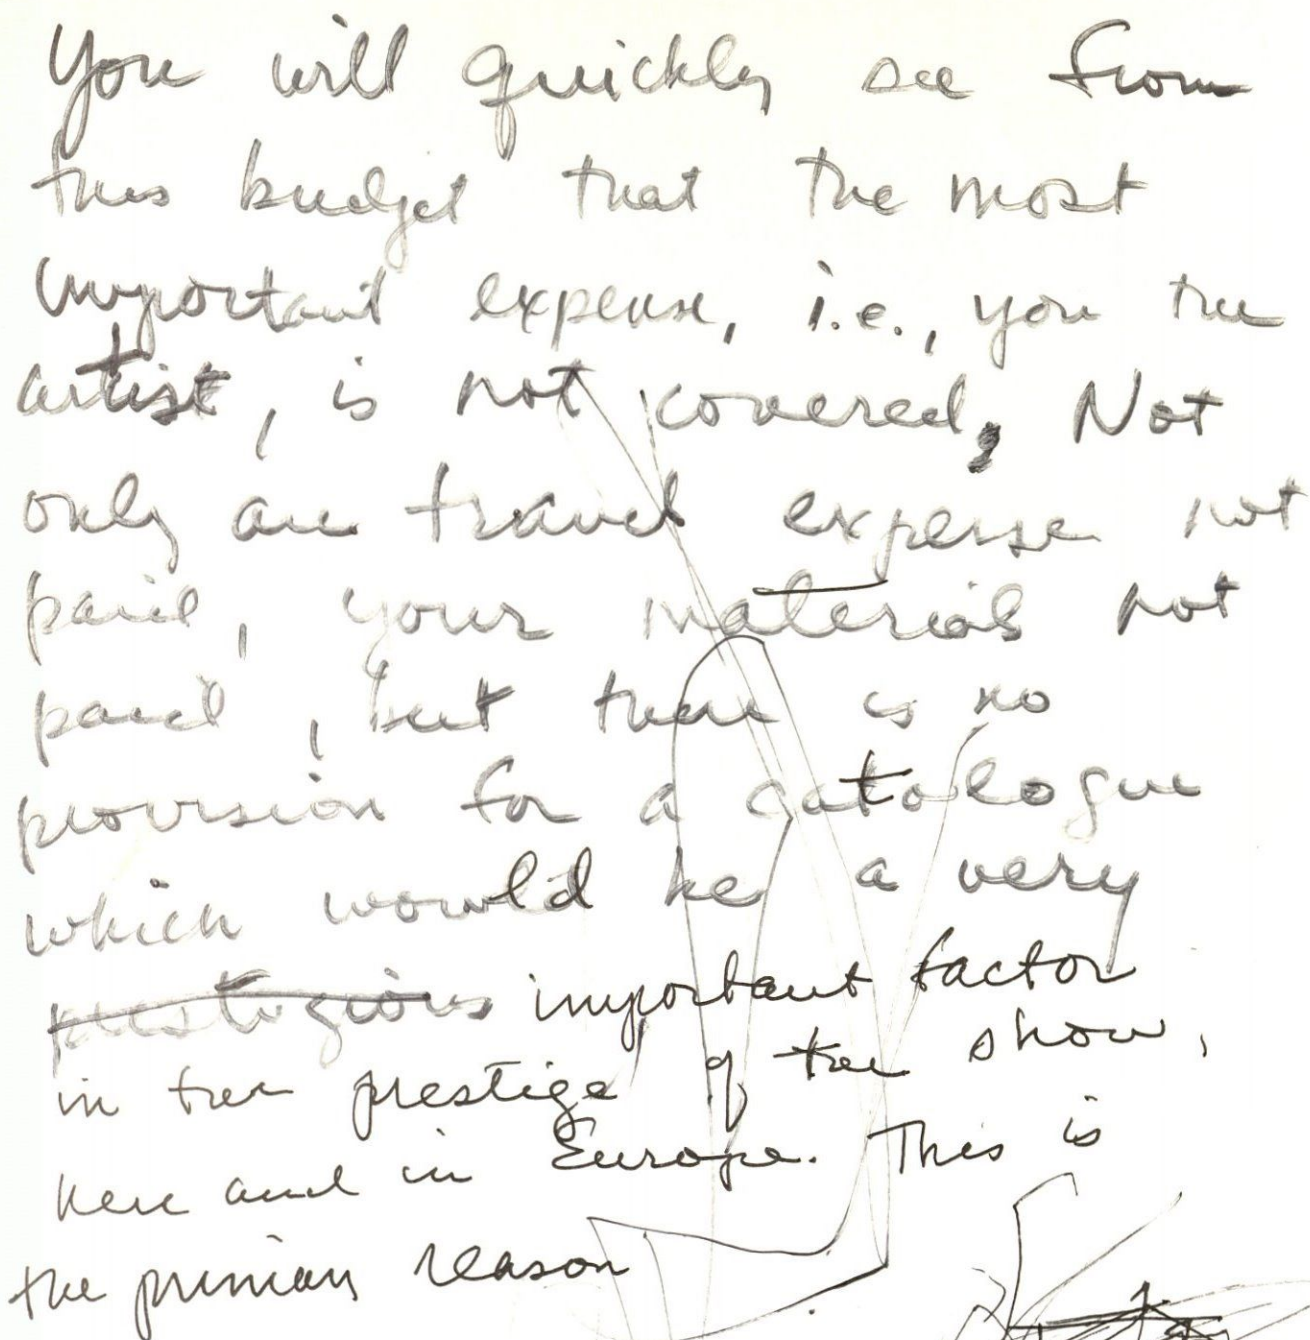 You will quickly see from
this budget that the most
important expense, i.e., you the
artist, is not covered. Not
only are travel expense not
paid, your materials not
paid, but there is no
provision for a catalogue
which would be a very
prestigious important factor
in the prestige of the show,
here and in Europe. This is
the primary reason